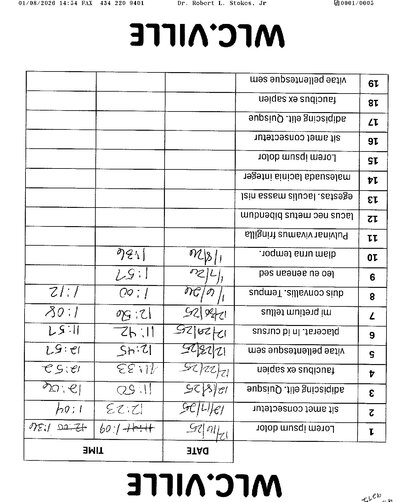 01/08/2026 14:54 FAX 434 220 9401 Dr. Robert L. Stokes, Jr 0001/0005
WLC.VILLE
DATE TIME
1 Lorem ipsum dolor 12/10/25 11:41 1:09 12:00 1:36
2 sit amet consectetur 12/17/25 12:23 1:04
3 adipiscing elit. Quisque 12/18/25 11:50 12:06
4 faucibus ex sapien 12/22/25 11:33 12:52
5 vitae pellentesque sem 12/23/25 12:45 12:57
6 placerat. In id cursus 12/29/25 11:42 11:57
7 mi pretium tellus 12/30/25 12:56 1:08
8 duis convallis. Tempus 1/6/26 1:00 1:12
9 leo eu aenean sed 1/7/26 1:57
10 diam urna tempor. 1/8/26 1:36
11 Pulvinar vivamus fringilla
12 lacus nec metus bibendum
13 egestas. Iaculis massa nisl
14 malesuada lacinia integer
15 Lorem ipsum dolor
16 sit amet consectetur
17 adipiscing elit. Quisque
18 faucibus ex sapien
19 vitae pellentesque sem
WLC.VILLE